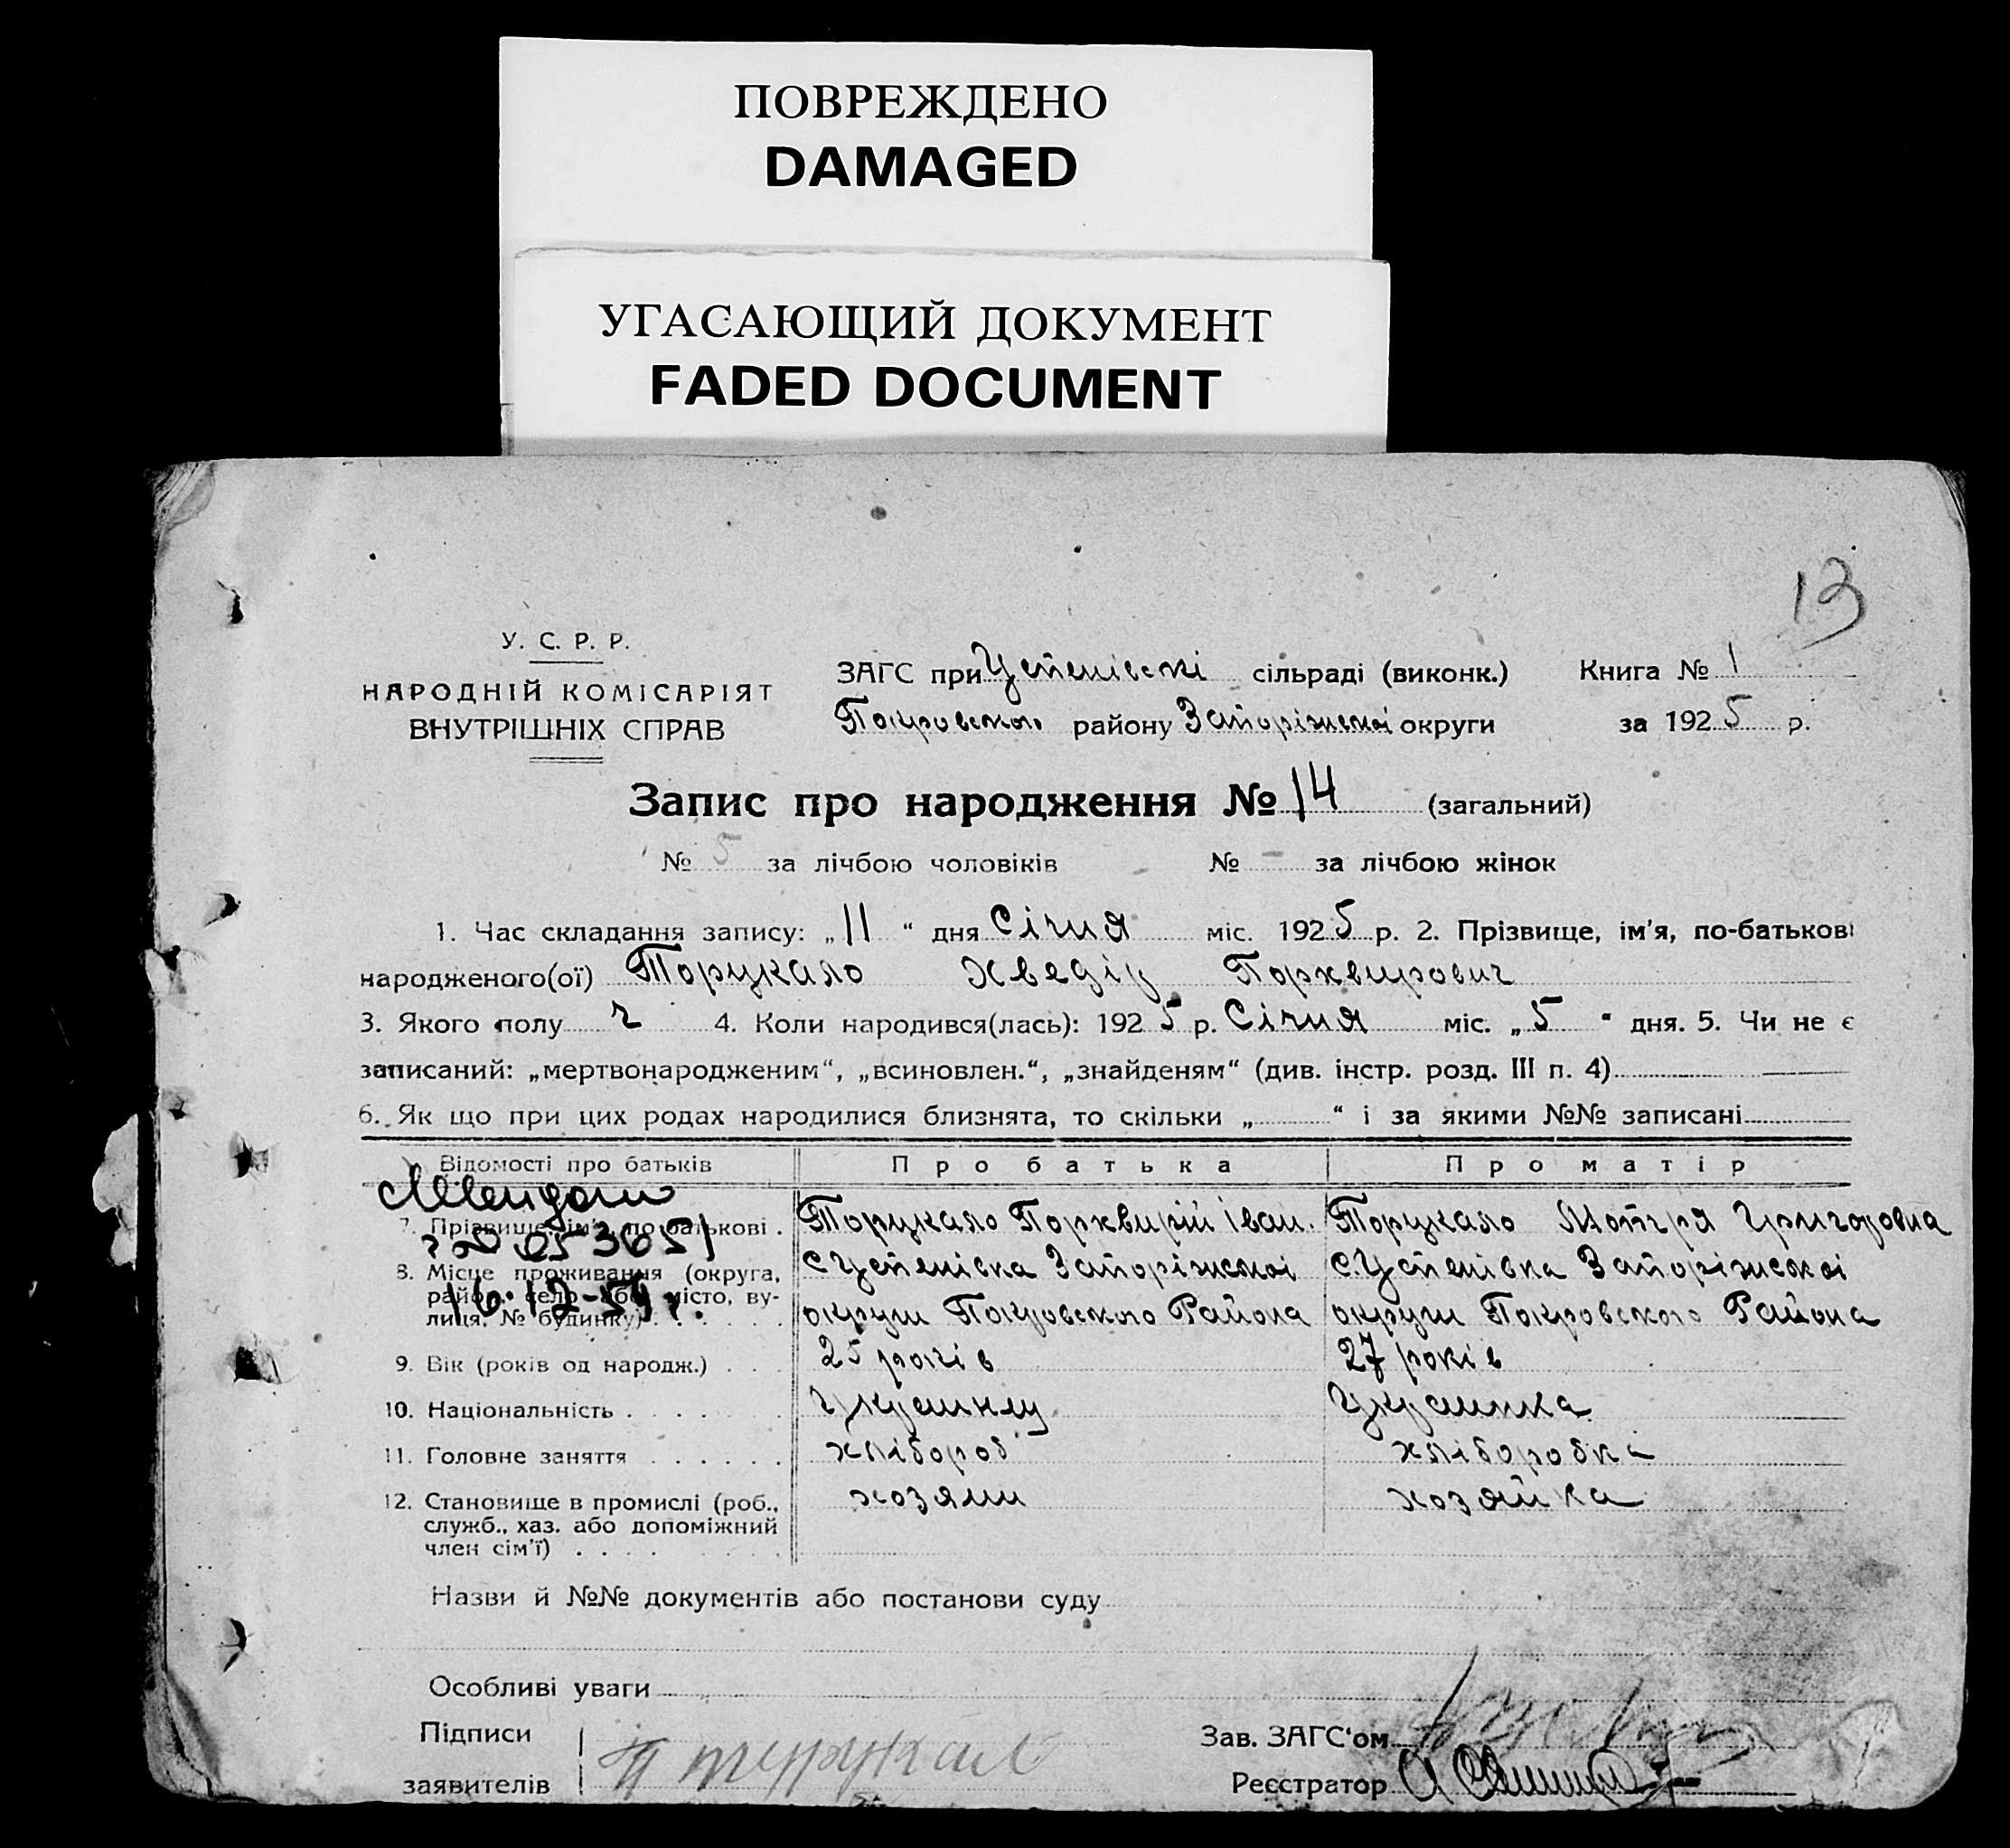 ПОВРЕЖДЕНО
DAMAGED
УГАСАЮЩИЙ ДОКУМЕНТ
FADED DOCUMENT
13
У. С. Р. Р.
НАРОДНІЙ КОМІСАРІЯТ
ВНУТРІШНІХ СПРАВ
ЗАГС при Успенівскі сільраді (виконк.) Книга № 1
Покровского району Запоріжскої округи за 1925 р.
Запис про народження № 14 (загальний)
№ 5 за лічбою чоловіків № — за лічбою жінок
1. Час складання запису: „11“ дня Січня міс. 1925 р. 2. Прізвище, ім'я, по-батькові
народженого(ої) Торукало Хведір Порхвирович
3. Якого полу ч 4. Коли народився(лась): 1925 р. Січня міс. „5“ дня. 5. Чи не є
записаний: „мертвонародженим“, „всиновлен.“, „знайденям“ (див. інстр. розд. III п. 4)
6. Як що при цих родах народилися близнята, то скільки „ “ і за якими №№ записані
Відомості про батьків Про батька Про матір
7. Прізвище, ім'я, по-батькові Торукало Порхвирій Іван. Торукало Мотря Григоровна
8. Місце проживання (округа, с Успенівка Запоріжскої с. Успенівка Запоріжскої
район, село або місто, ву-
лиця, № будинку) округи Покровского Района округи Покровского Района
16.12-54 г.
9. Вік (років од народж.) 25 років 27 років
10. Національність Украинец Украинка
11. Головне заняття хлібороб хліборобка
12. Становище в промислі (роб., хозяин хозяйка
служб., хаз. або допоміжний
член сім'ї)
Назви й №№ документів або постанови суду
Особливі уваги
Підписи Зав. ЗАГС'ом
заявителів П Торукало Реєстратор